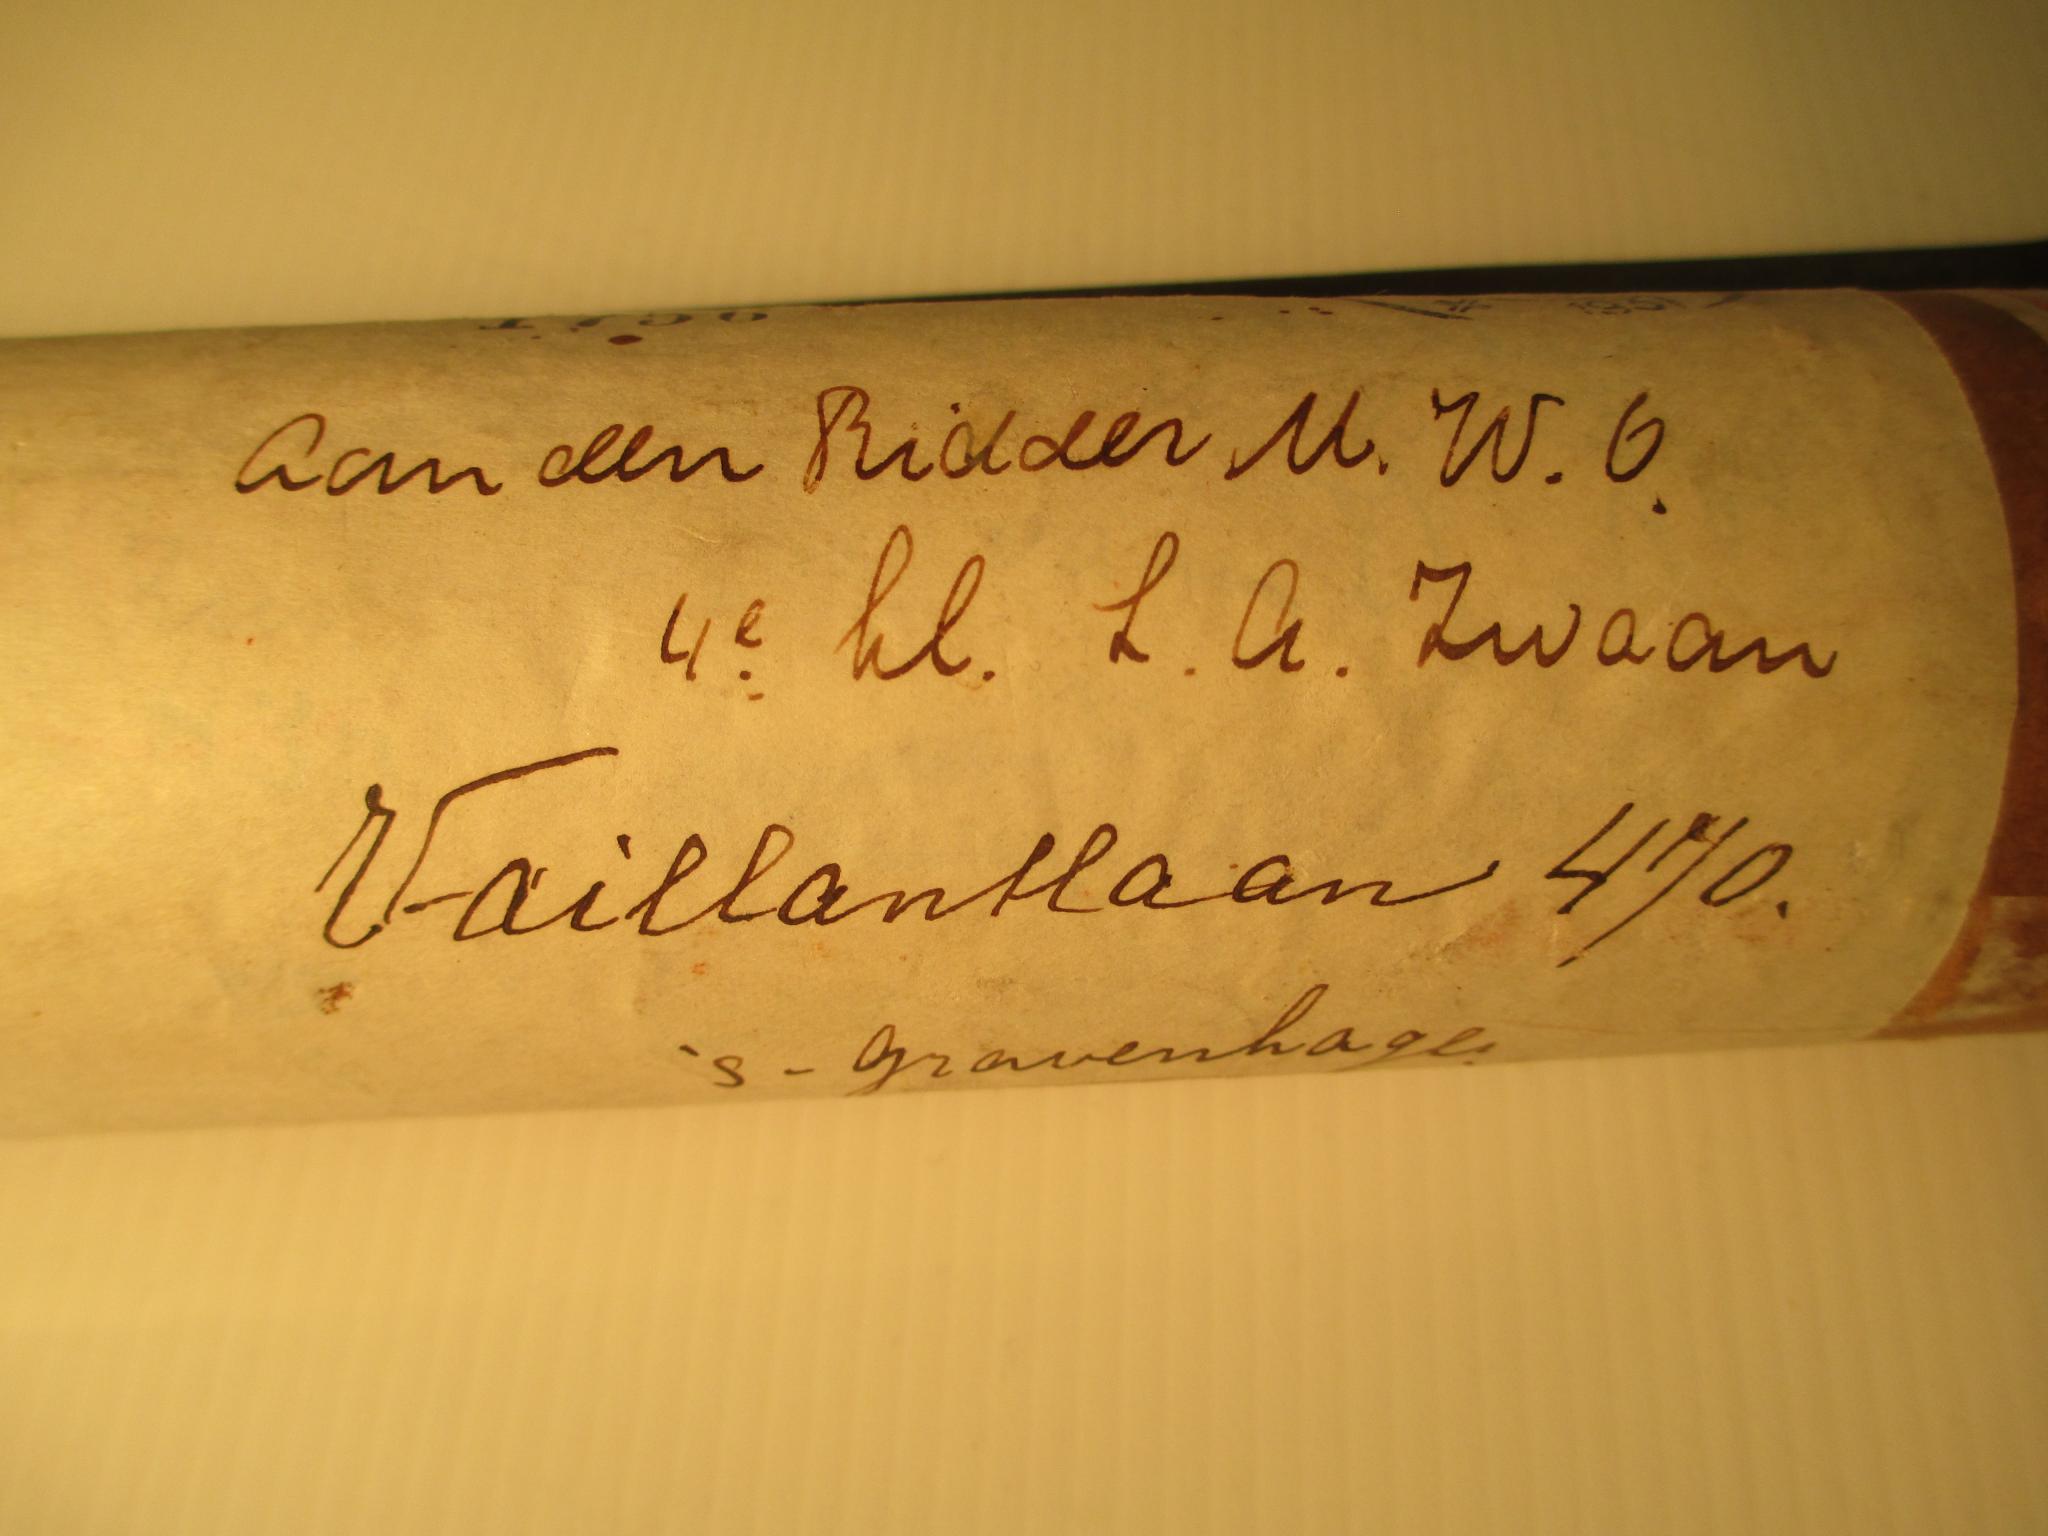 Aan den Ridder M. W. O.
4e kl. L. A. Zwaan
Vaillantlaan 470.
's-Gravenhage.